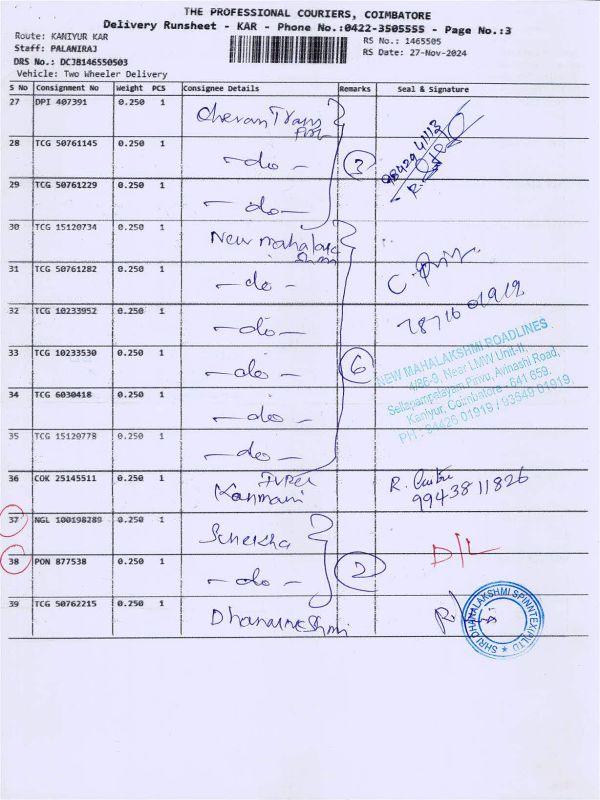 THE PROFESSIONAL COURIERS, COIMBATORE
Delivery Runsheet - KAR - Phone No.:0422-3505555 - Page No.:3
Route: KANIYUR KAR
RS No.: 1465505
Staff: PALANIRAJ
RS Date: 27-Nov-2024
DRS No.: DCJB146550503
Vehicle: Two Wheeler Delivery
S No Consignment No Weight PCS Consignee Details Remarks Seal & Signature
27 DPI 407391 0.250 1 Cheran Trans
28 TCG 50761145 0.250 1 - do - 3 9842941113
29 TCG 50761229 0.250 1 - do -
30 TCG 15120734 0.250 1 New mahalak
31 TCG 50761282 0.250 1 - do -
32 TCG 10233952 0.250 1 - do -
33 TCG 10233530 0.250 1 - do - 6
NEW MAHALAKSHMI ROADLINES
4/86-9, Near LMW Unit-II,
Sellappampalayam Pirivu, Avinashi Road,
Kaniyur, Coimbatore - 641 659.
PH : 84426 01919 / 93649 01919
34 TCG 6030418 0.250 1 - do -
35 TCG 15120778 0.250 1 - do -
36 COK 25145511 0.250 1 Kanmani R.
9943811826
37 NGL 100198289 0.250 1 D/L
38 PON 877538 0.250 1 - do - 2
39 TCG 50762215 0.250 1
SHRI DHANALAKSHMI SPINNTEX (P) LTD